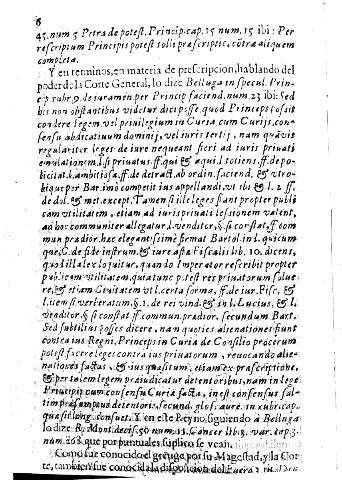 6
45. num. 5 Petra de potest. Princip. cap. 15 num. 15 ibi: Per
rescriptum Principis potest tolli præscriptio, cōtra aliquem
completa.
Y en terminos, en materia de prescripcion, hablando del
poder de la Corte General, lo dize Belluga in specul. Prin-
cip. rubr. 9. de iuramen. per Princip. faciend. num. 23 ibi: Sed
bis non obstantibus videtur dici posse, quod Princeps possit
condere legem vel priuilegium in Curia, cum Curijs, con-
sensu abdicatiuum dominij, vel iuris tertij, nam quāvis
regulariter leges de iure nequeant fieri ad iuris priuati
emulationem, l. si priuatus. ff. qui & a qui. l. totiens, ff. de po-
licitat. l. ambitiosa, ff. de decret. ab ordin. faciend. & vtro-
bique per Bar. imo competit ius appellandi, vt ibi & l. 2 ff.
de dol. & met. except. Tamen si ille leges fiant propter publi
cam vtilitatem, etiam ad iuris priuati lesionem valent,
ad hoc communiter allegatur l. venditor, §. si constat, ff com
mun prædior. hec elegantissimè firmat Bartol. in l. quicum
que, C. de fide instrum. & iure asta Fiscalis lib. 10. dicens,
quod illa lex loquitur, quando Imperator rescribit propter
publicam vtilitatem, quia tunc potest rei priuatorum folue
re, & etiam Ciuitatem vt l. certa forma, ff. de iur. Fisc. &
l. item si verberatum, §. 1. de rei vind. & in l. Lucius, & l.
venditor. §. si constat ff. commun. prædior. secundum Bart.
Sed subtilius posses dicere, nam quoties alienationes fiunt
contra ius Regni, Princeps in Curia de Consilio procerum
potest facere leges contra ius priuatorum, reuocando alie-
nationes factas, & ius quæsitum, etiam ex præscriptione,
& per talem legem præiudicatur detentoribus, nam in lege
Principis cum consensu Curia facta, inest consensus sal-
tim præsumptus detentoris, secund. glos. aure. in rubr. cap.
quæ sit long. consuet. Y en este Reyno siguiendo à Belluga
lo dize R. Mont. decis. 50 num. 11. Cancer lib. 3. var. cap. 3.
num. 268 que por puntuales suplico se vean.
Como fue conocido el greuge por su Magestad, y la Cor
te, tambien fue conocida la disposicion del Fuero